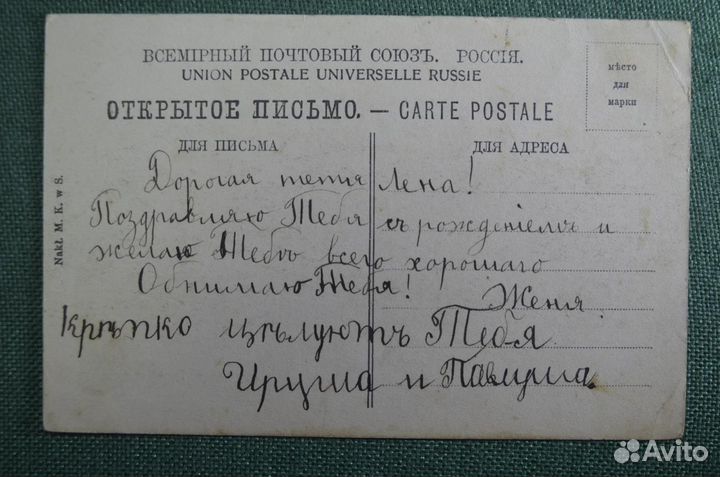 ВСЕМІРНЫЙ ПОЧТОВЫЙ СОЮЗЪ. РОССІЯ.
UNION POSTALE UNIVERSELLE RUSSIE
ОТКРЫТОЕ ПИСЬМО. — CARTE POSTALE
мѣсто
для
марки
ДЛЯ ПИСЬМА
ДЛЯ АДРЕСА
Nakł. M. K. w S.
Дорогая тетя Лена!
Поздравляю Тебя съ рожденіемъ и
желаю Тебѣ всего хорошаго
Обнимаю Тебя!
Женя
Крѣпко цѣлуютъ Тебя
Ируша и Павлуша.
Avito